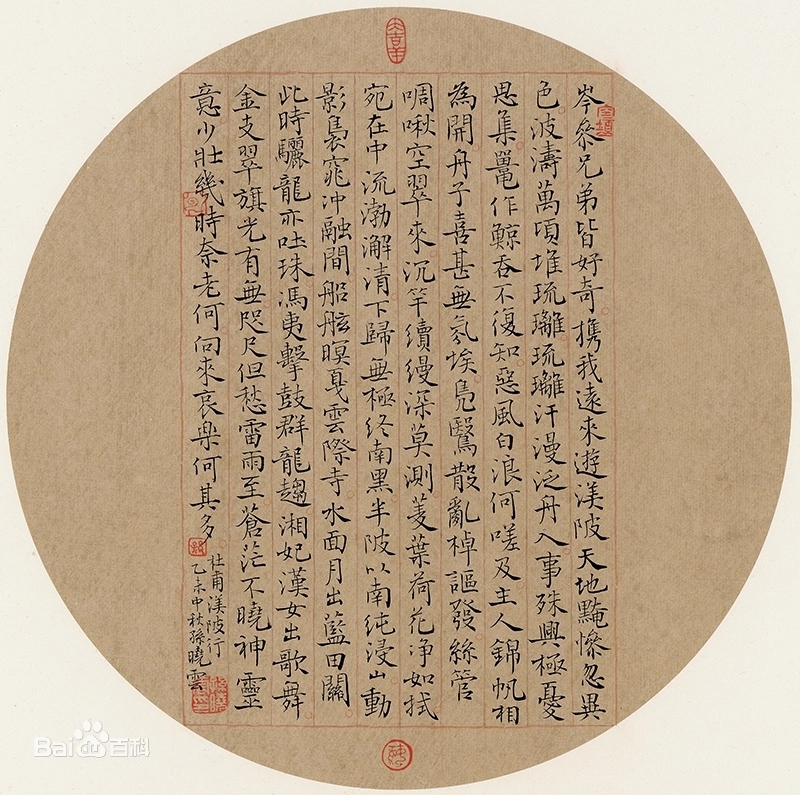 大吉羊
岑叅兄弟皆好奇携我遠來遊渼陂天地黤慘忽異
色波濤萬頃堆琉璃琉璃汗漫泛舟入事殊興極憂
思集鼉作鯨吞不復知惡風白浪何嗟及主人錦帆相
為開舟子喜甚無氛埃鳧鷖散亂棹謳發絲管
啁啾空翠來沉竿續縵深莫測菱葉荷花净如拭
宛在中流渤澥清下歸無極終南黑半陂以南純浸山動
影裊窕沖融間船舷暝戛雲際寺水面月出藍田關
此時驪龍亦吐珠馮夷擊鼓群龍趨湘妃漢女出歌舞
金支翠旗光有無咫尺但愁雷雨至蒼茫不曉神靈
意少壯幾時奈老何向來哀樂何其多
杜甫渼陂行
乙未中秋孫曉雲
Bai百科